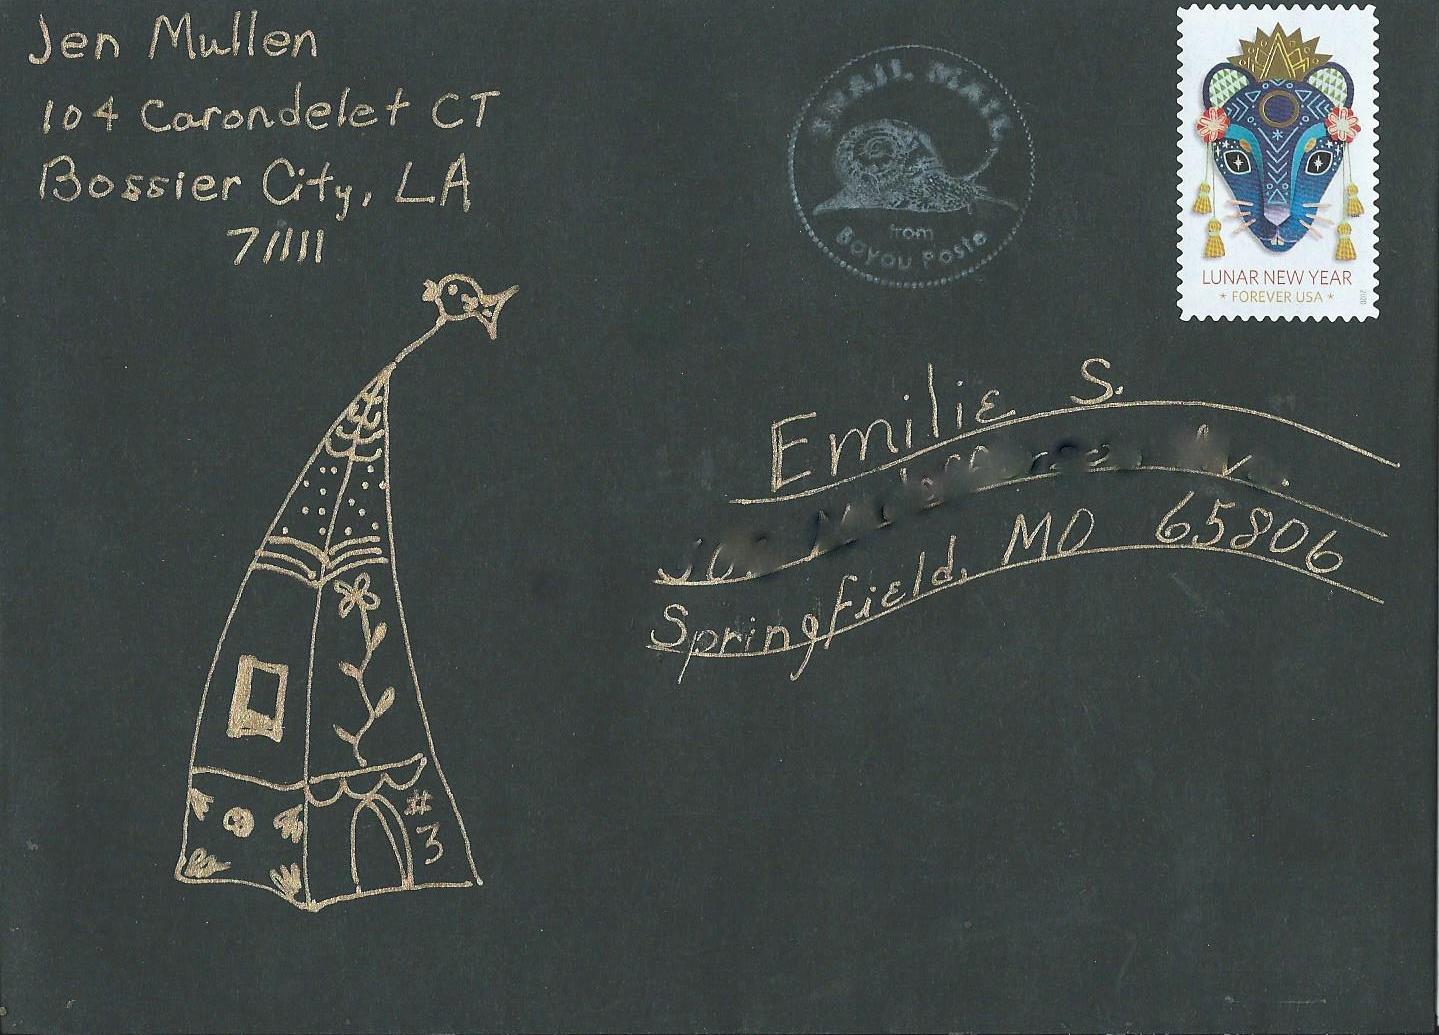 Jen Mullen
104 Carondelet CT
Bossier City, LA
71111
SNAIL MAIL
from
Bayou Poste
LUNAR NEW YEAR
* FOREVER USA *
2020
Emilie S.
Springfield, MO 65806
#
3